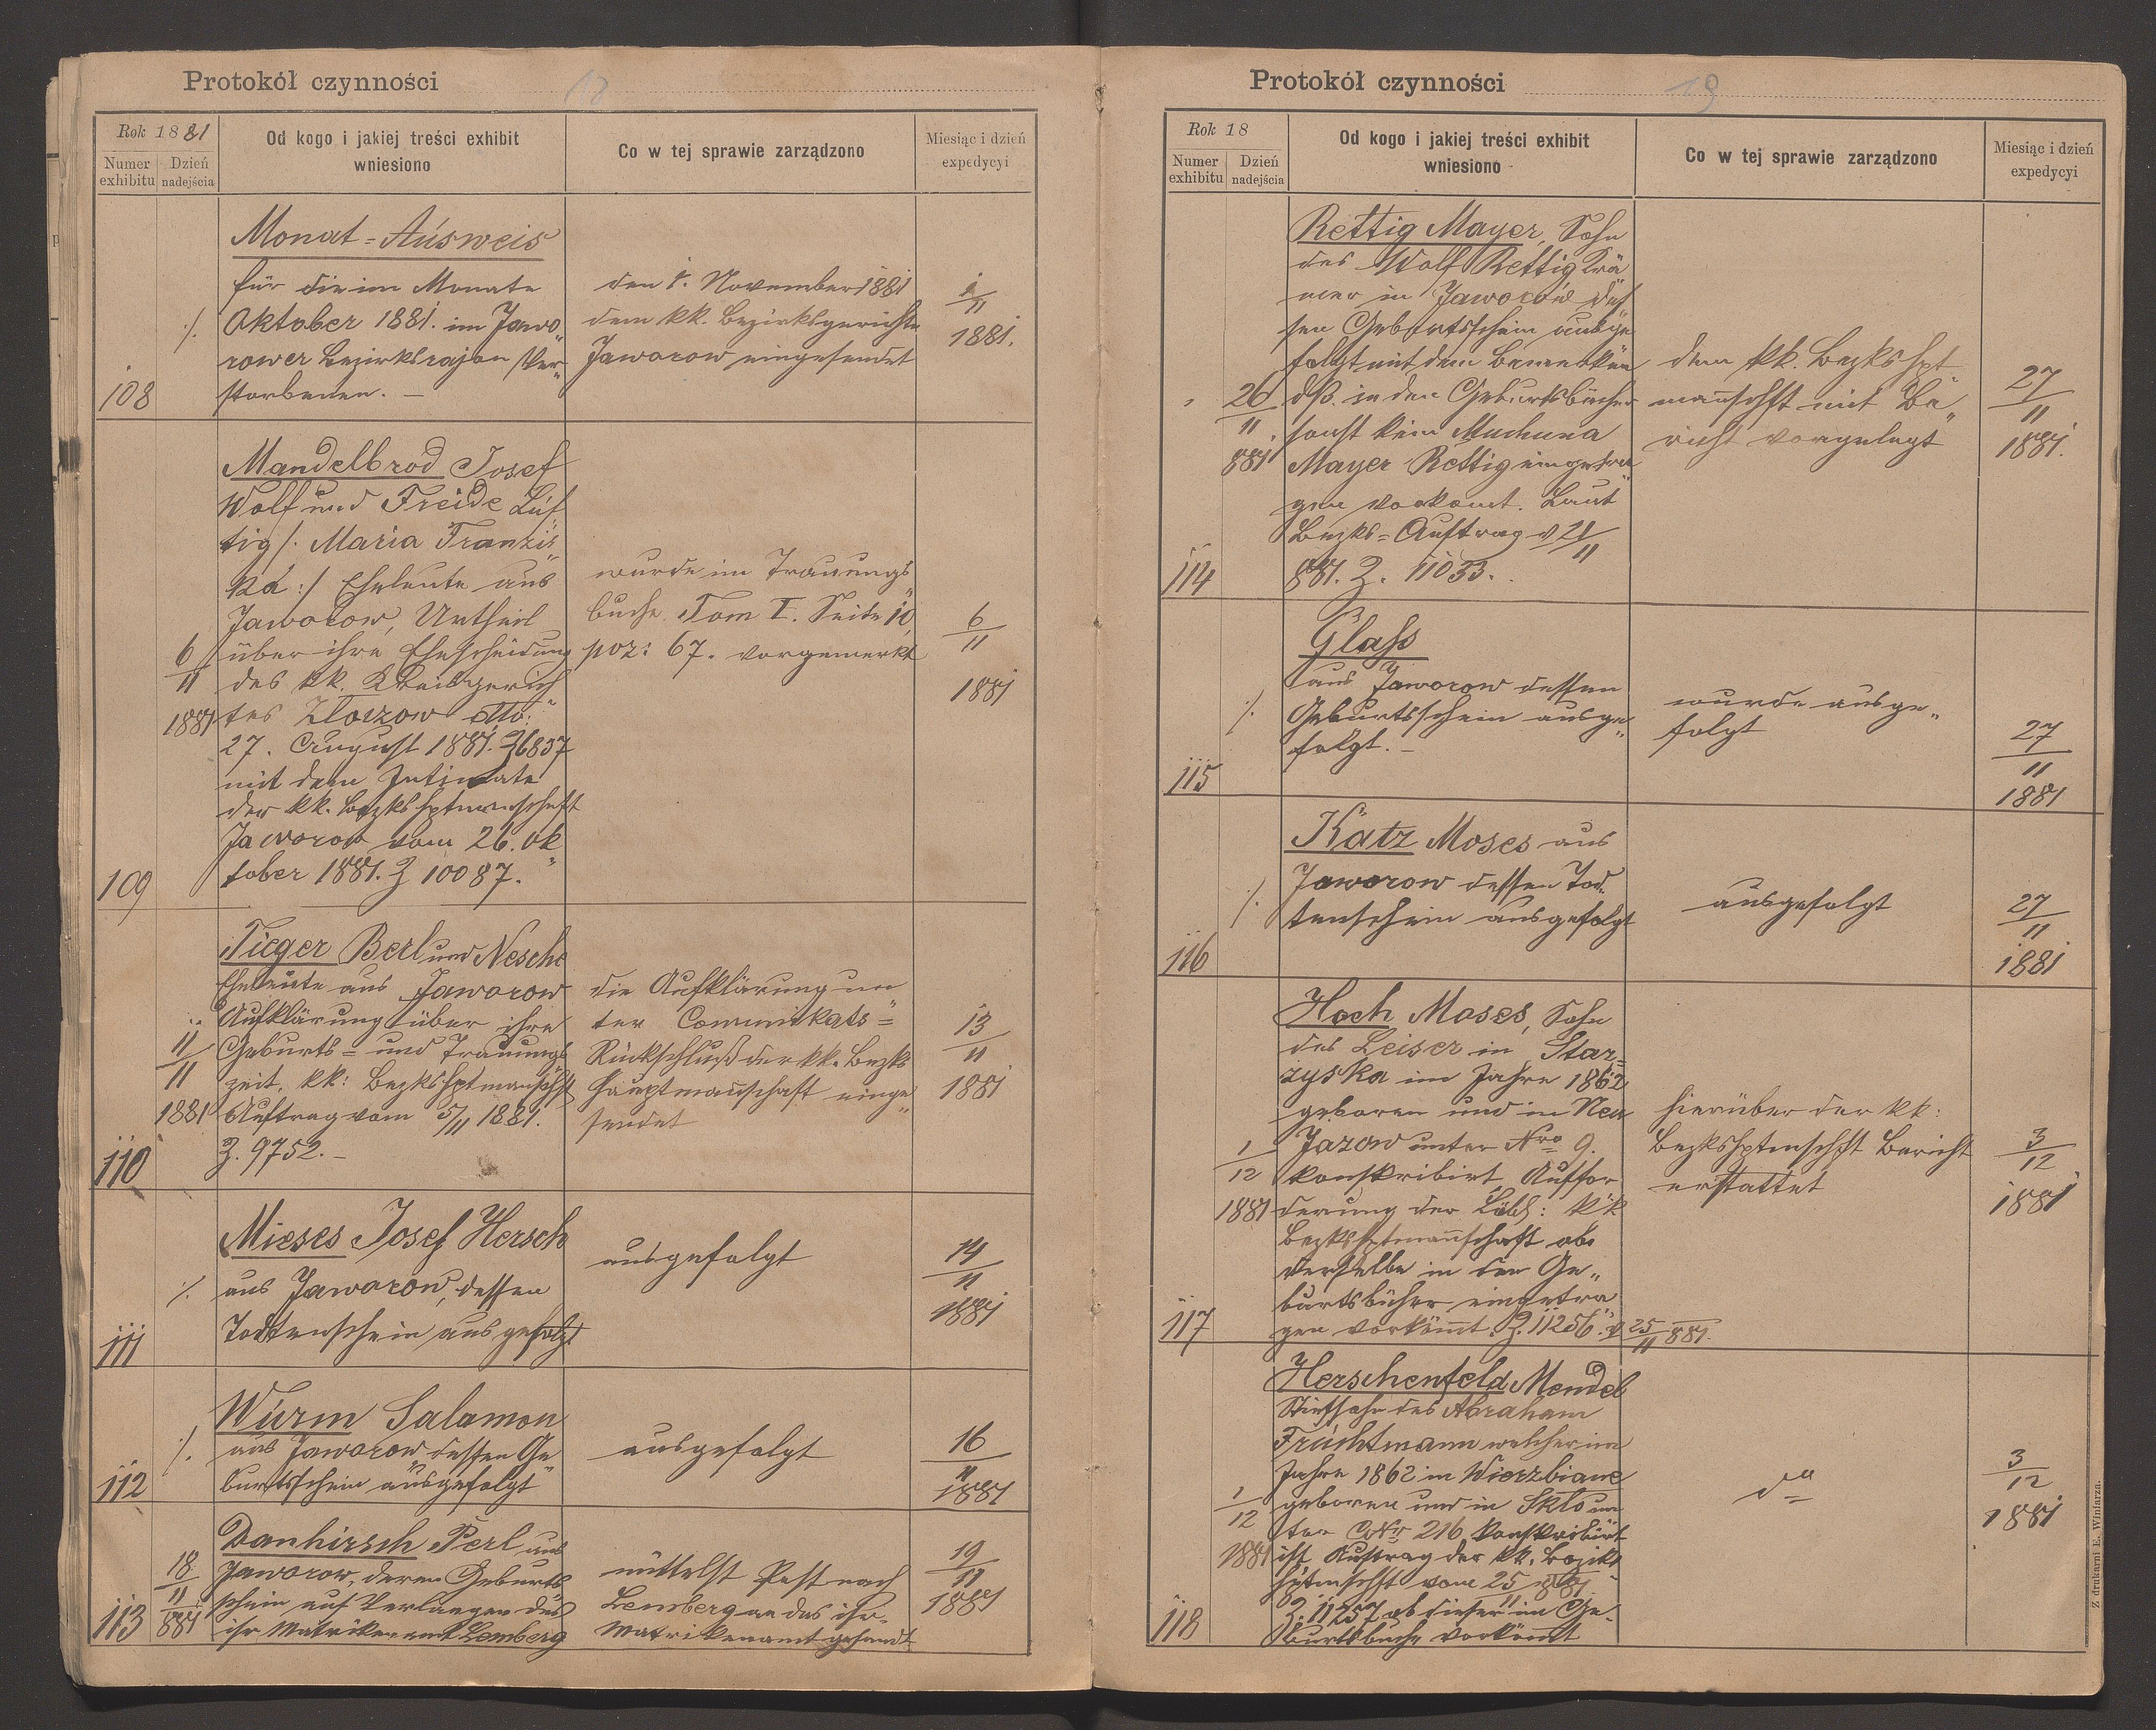 Protokół czynności 18
Rok 1881
Numer exhibitu
Dzień nadejścia
Od kogo i jakiej treści exhibit
wniesiono
Co w tej sprawie zarządzono
Miesiąc i dzień
expedycyi
108
./.
Monat-Ausweis
für die im Monate
Oktober 1881. im Jawo„
rower Bezirksrajon Ver„
storbenen. –
den 1. November 1881
dem kk. Bezirksgerichte
Jaworow eingesendet
1/11
1881.
109
6/11
1881
Mandelbrod Josef
Wolf und Freide Lus
tig /: Maria Franzis„
ka :/ Eheleute aus
Jaworow, Urtheil
über ihre Ehescheidung
des kk. Kreisgerich„
tes Złoczow dtto:
27. August 1881. Z 6837
mit dem Intimate
der kk. Bezks Hptmannschaft
Jaworow vom 26. Ok„
tober 1881. Z 10087.
wurde im Trauungs„
buche Tom I. Seite 10,
poz: 67. vorgemerkt
6/11
1881
110
11/11
1881
Tieger Berl und Nesche
Eheleute aus Jaworow
Aufklärung über ihre
Geburts- und Trauungs
zeit, kk: BezksHptmanschft
Auftrag vom 5/11 1881.
Z. 9752. –
die Aufklärung un„
ter Comunikats-
Rückschluß der kk. Bezks
Hauptmannschaft einge„
sendet
13/11
1881
111
./.
Mieses Josef Hersch
aus Jaworow, dessen
Todtenschein ausgefolgt
ausgefolgt
14/11
1881
112
./.
Wurm Salamon
aus Jaworow, dessen Ge„
burtsschein ausgefolgt
ausgefolgt
16/11
1881
113
18/11
881
Danhirsch Perl, aus
Jaworow, deren Geburts
schein auf Verlangen des
isr Matrikenamt Lemberg
mittelst Post nach
Lemberg an das isr.
Matrikenamt gesandt
19/11
1881
Protokół czynności 19
Rok 18
Numer exhibitu
Dzień nadejścia
Od kogo i jakiej treści exhibit
wniesiono
Co w tej sprawie zarządzono
Miesiąc i dzień
expedycyi
114
26/11
881
Rettig Mayer, Sohn
des Wolf Rettig Krä„
mer in Jaworów des
sen Geburtsschein ausge
folgt mit dem Bemerken
dß. in den Geburtsbücher
sonst kein
Mayer Rettig eingetra„
gen vorkomt. Laut
Bezks-Auftrag v 21/11
881. Z. 11033.
dem kk. BezksHpt
mannschft mit Be„
richt vorgelegt
27/11
1881.
115
./.
Glass
aus Jaworow dessen
Geburtsschein ausge„
folgt. –
wurde ausge„
folgt
27/11
1881
116
./.
Katz Moses aus
Jaworow dessen Tod
tenschein ausgefolgt
ausgefolgt
27/11
1881
117
1/12
1881
Hoch Moses, Sohn
des Leiser in Star-
zyska im Jahre 1862
geboren und in Neu
Jazow unter Nro 9.
konskribirt, Auffor
derung der Löbl: kk
BezksHptmannschaft ob
derselbe in den Ge„
burtsbücher eingetra
gen vorkömmt. Z. 11256. v 25/11 881.
hierüber der kk:
BezksHptmschft Bericht
erstattet
3/12
1881
118
1/12
1881
Herschenfeld Mendel
Stiefsohn des Abraham
Früchtmann welcher im
Jahre 1862 in Wierzbiane
geboren und in Skło un
ter CNr 216 konskribirt
ist, Auftrag der kk. Bezirks
Hptmschft vom 25/11 881.
Z. 11257 ob dieser im Ge-
burtsbuche vorkömmt
dto
3/12
1881
Z drukarni E. Winiarza.